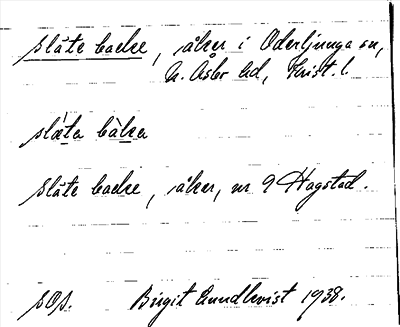 slåte backe, åker i Oderljunga sn,
N. Åsbo hd, Krist. l.
slǽta bàka
slåte backe, åker, nr 9 Hagstad.
SOS. Birgit Sundkvist 1938.